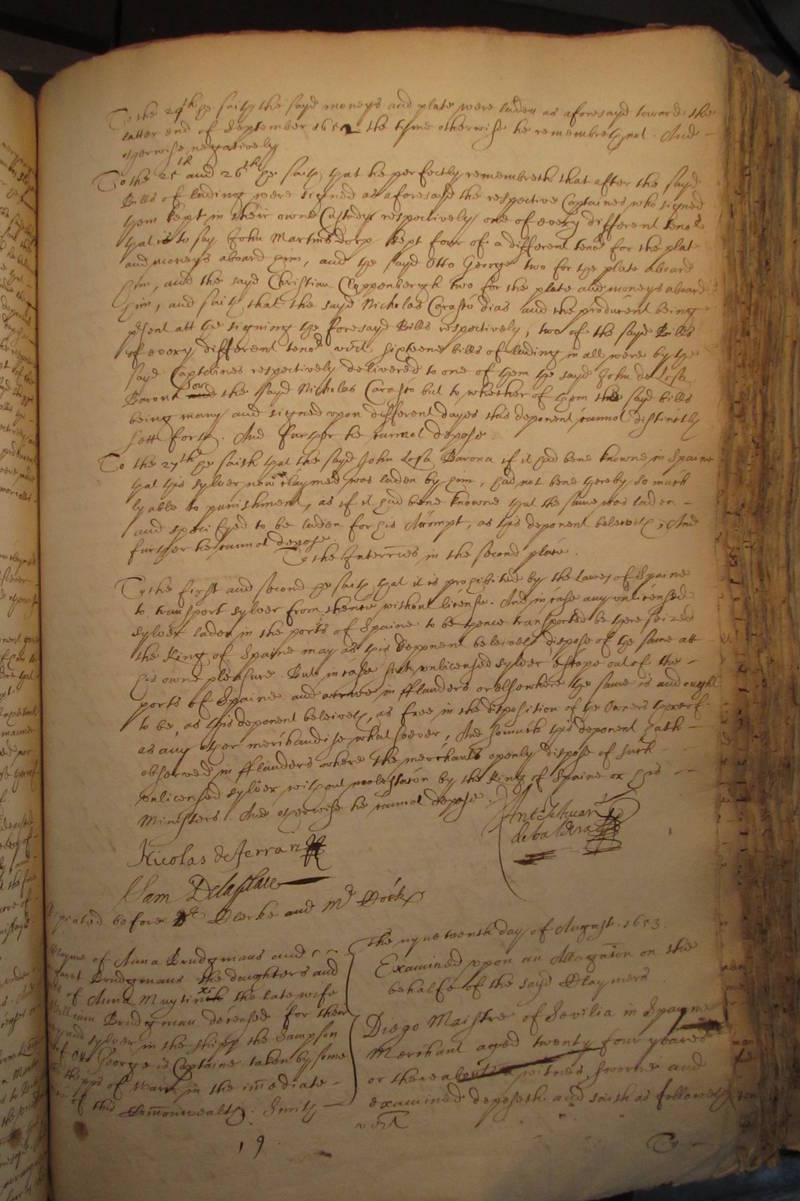 To the 24th he saith the sayd moneys and plate were laden as aforesayd toward the
latter end of September 1652 the tyme otherwise he remembreth not. And
otherwise negatively
To the 25th and 26th he saith that he perfectly remembreth that after the sayd
Bills of lading were signed as aforesayd the respective Captaines who signed
them kept in their owne Custody respectively one of every different teno:r
that is to say John Martins dorp kept four of a different teno:r for the plate
and moneys aboard him, and the sayd Otto George two for the plate aboard
him, and the sayd Christian Cloppenbergh two for the plate and moneys aboard
him, and saith that the sayd Nicholas Corasio dias and the producent being
p:rsent att the signing the foresayd Bills respectively, two of the sayd Bills
of every different teno:r sixteene bills of lading in all were by the
sayd Captaines respectively delivered to one of them the sayd John de Losa
Barona or the sayd Nicholas Corasio but to whether of them the sayd bills
being many and signed upon different dayes this deponent cannot distinctly
sett forth. And further he cannot depose.
To the 27th he saith that the sayd John Losa Barona if it had bene knowne in Spaine
that this sylver now claymed was laden by him, had not bene thereby so much
lyable to punishment, as if it had bene knowne that the same was laden
and specifyed to be laden for his Accompt, as this deponent beleiveth, And
further he cannot depose.
To the Interries in the second place.
To the first and second he saith that it is prohibited by the Lawes of Spaine
to transport sylver from thence without license. And in case any unlicensed
sylver laden in the ports of Spaine to be thence transported be there seized
the King of Spaine may as this deponent beleiveth dispose of the same att
his owne pleasure. But in case such unlicensed sylver escape out of the
ports of Spaine and arrive in fflanders or elsewhere the same is and ought
to be, as this deponent beleiveth, as free in the disposition of the Owners thereof
as any other merchandise whatsoever, And so much this deponent hath
observed in fflanders where the merchants openly dispose of such
unlicensed sylver without molestation by the King of Spaine or his
Ministers. And otherwise he cannot depose.
Nicolas de Ferran
Sam Delaplace
Repeated before D:r Clerke and M:r Dorislaus
Clayme of Anna Brudgmans and
Brudgmans the daughters and
of Anna Muytinck the late wife
Brudgman deceased for their
sylver in the shipp the Sampson
Otto George is Captaine taken by some
shipps of warr in the imediate
of this Commonwealth. Smith
The nyneteenth day of August. 1653.
Examined upon an Allegation on the
behalfe of the sayd Claymers
Diego Maistre of Sevilia in Spayne
Merchant aged twenty four yeares
or thereabouts a witnes sworne and
examined deposeth and saith as followeth
vizt
To
19